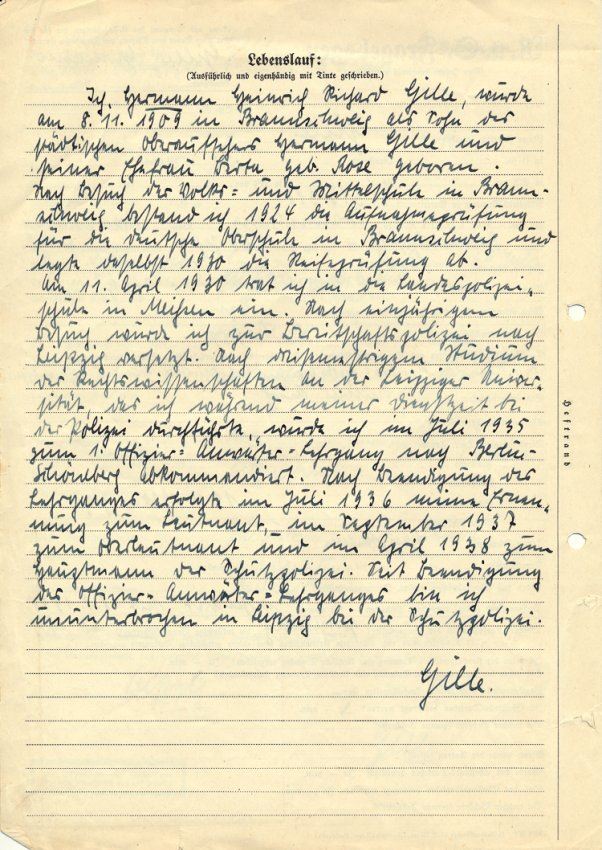 Lebenslauf:
(Ausführlich und eigenhändig mit Tinte geschrieben.)
Ich, Hermann Heinrich Richard Gille, wurde
am 8.11.1909 in Braunschweig als Sohn des
städtischen Oberaufsehers Hermann Gille und
seiner Ehefrau Berta geb. Rose geboren.
Nach Besuch der Volks= und Mittelschule in Braun-
schweig bestand ich 1924 die Aufnahmeprüfung
für die deutsche Oberschule in Braunschweig und
legte daselbst 1930 die Reifeprüfung ab.
Am 11. April 1930 trat ich in die Landespolizei-
schule in Meißen ein. Nach einjährigem
Besuch wurde ich zur Bereitschaftspolizei nach
Leipzig versetzt. Nach dreisemestrigem Studium
der Rechtswissenschaften an der Leipziger Univer-
sität, das ich während meiner Dienstzeit bei
der Polizei durchführte, wurde ich im Juli 1935
zum 1. Offizier-Anwärter-Lehrgang nach Berlin-
Schöneberg abkommandiert. Nach Beendigung des
Lehrganges erfolgte im Juli 1936 meine Ernen-
nung zum Leutnant, im September 1937
zum Oberleutnant und im April 1938 zum
Hauptmann der Schutzpolizei. Seit Beendigung
des Offizier-Anwärter-Lehrganges bin ich
ununterbrochen in Leipzig bei der Schutzpolizei.
Gille.
Heftrand